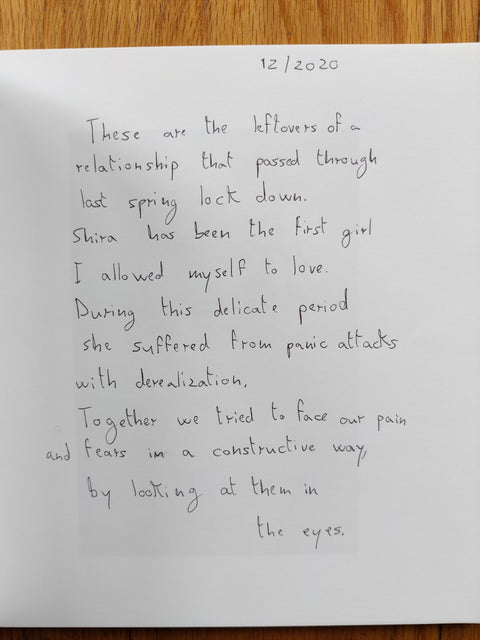 12/2020
These are the leftovers of a
relationship that passed through
last spring lock down.
Shira has been the first girl
I allowed myself to love.
During this delicate period
she suffered from panic attacks
with derealization.
Together we tried to face our pain
and fears in a constructive way,
by looking at them in
the eyes.